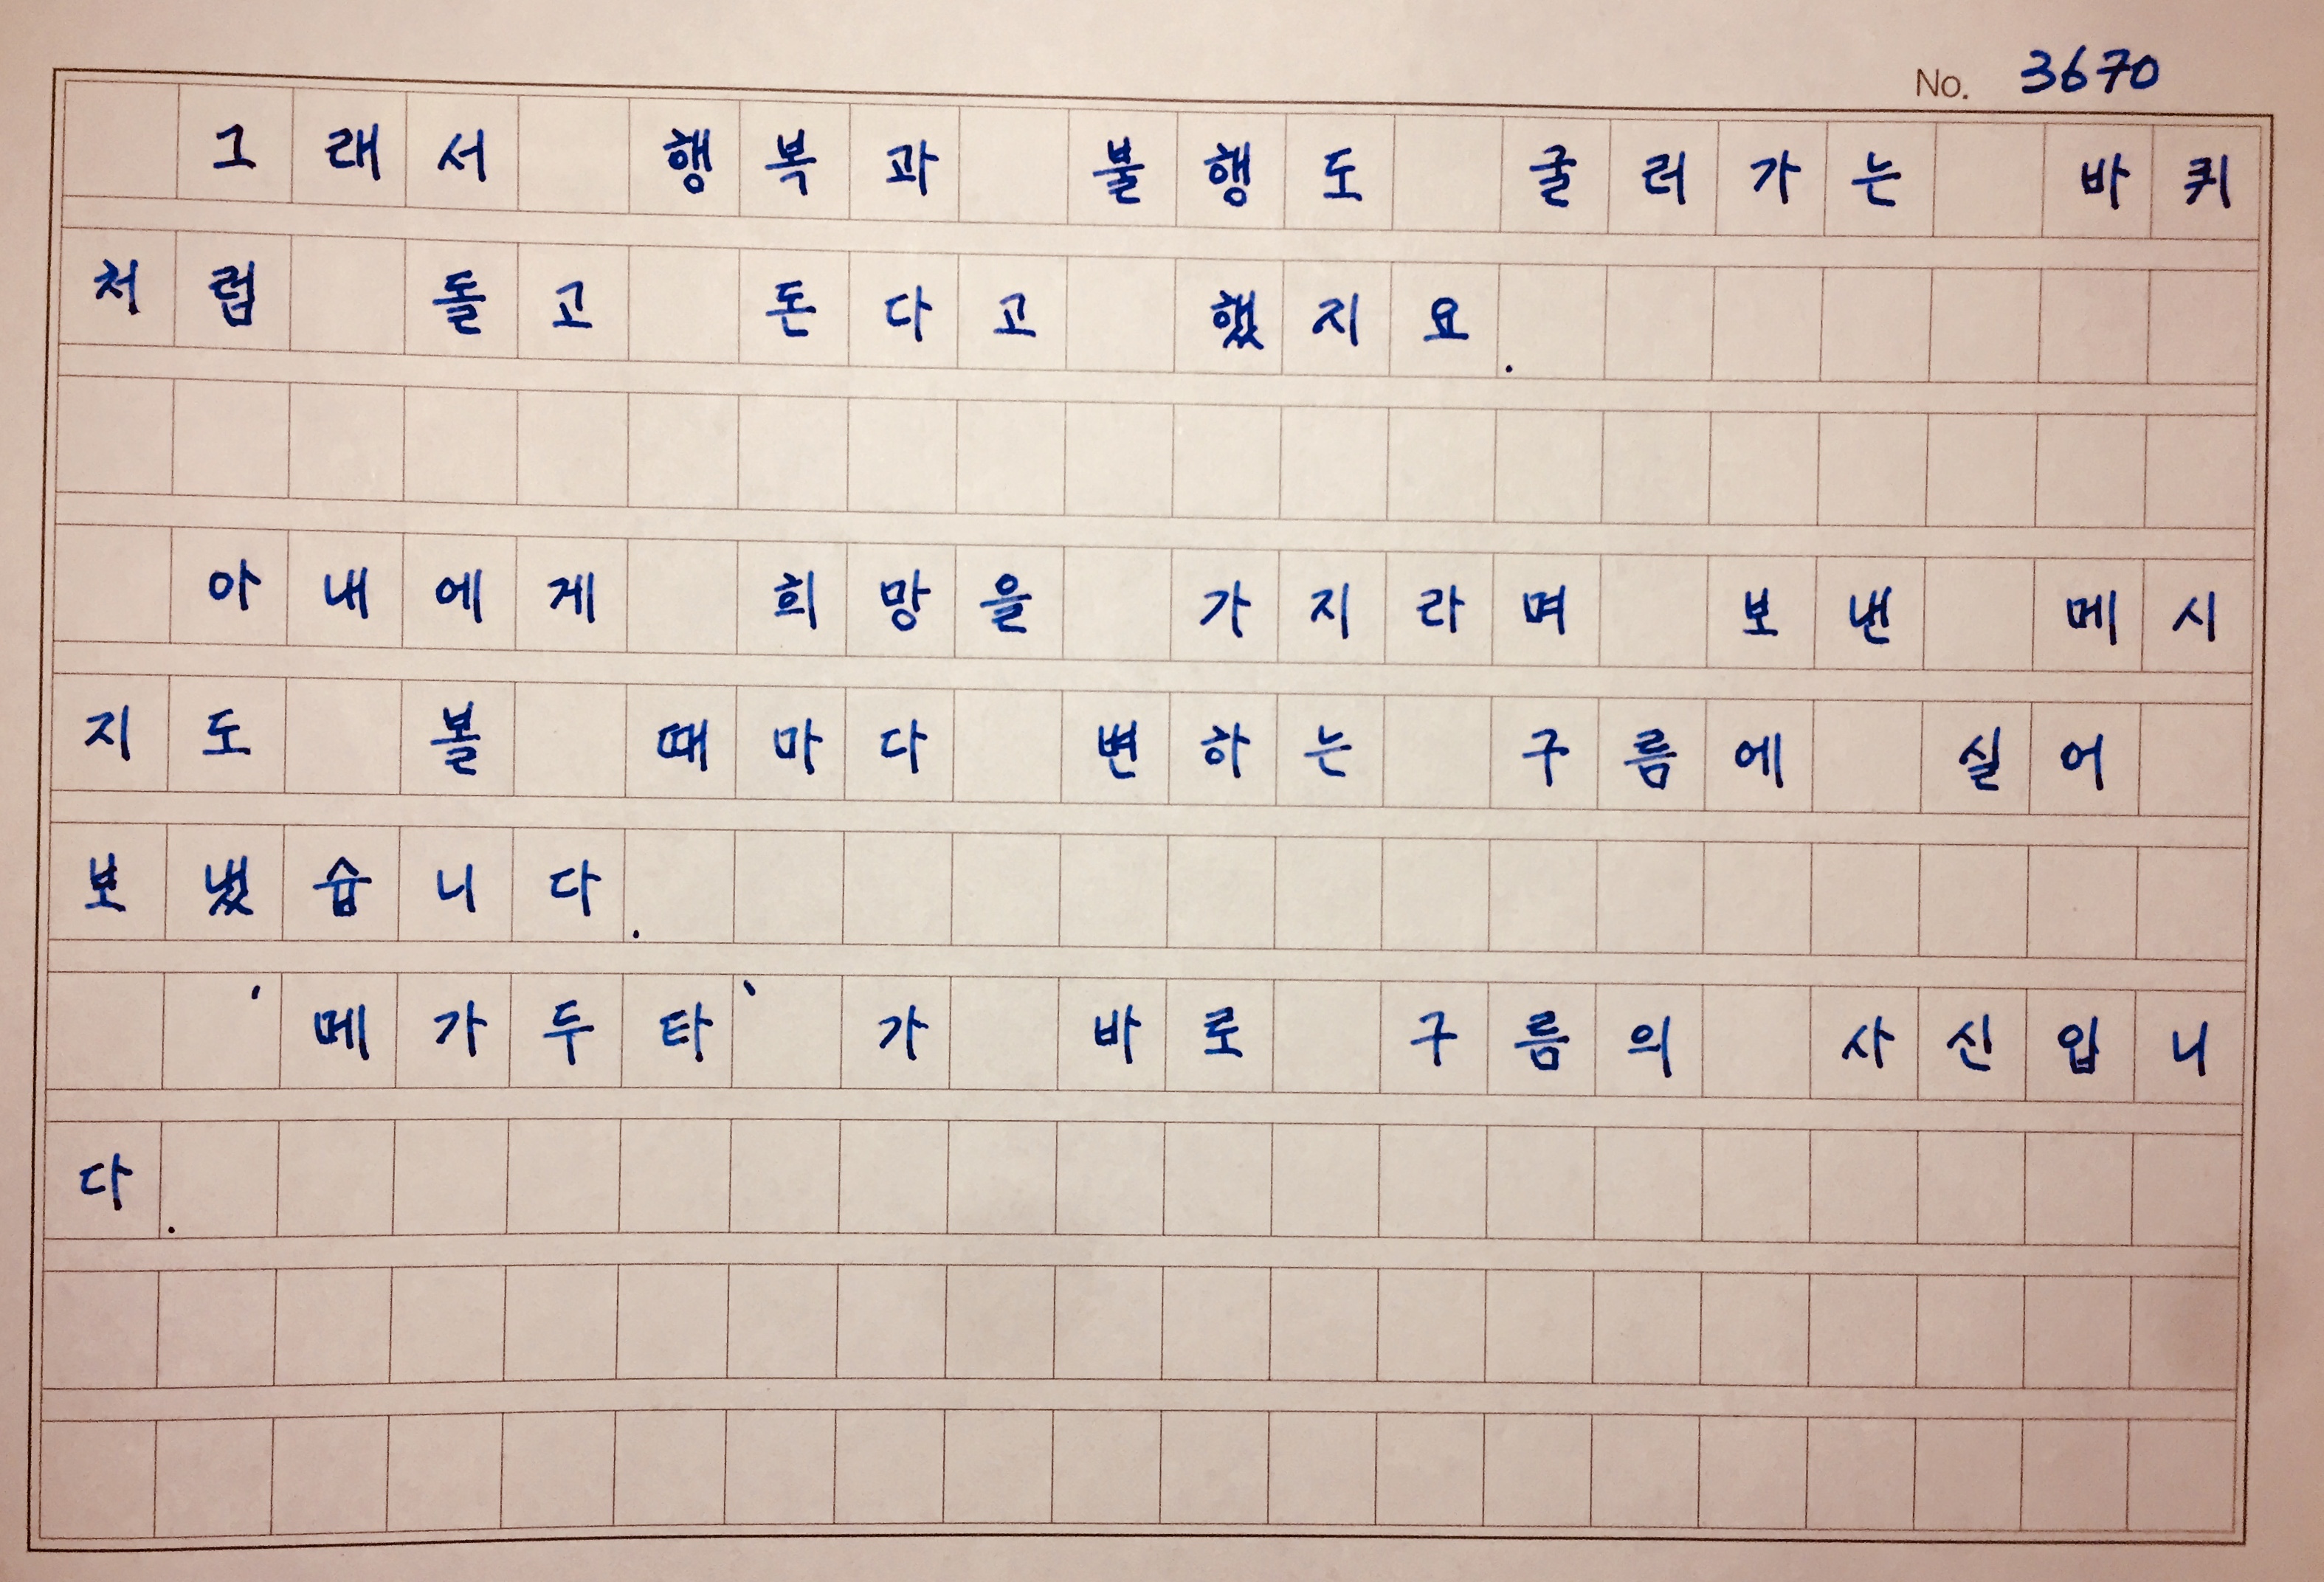 No. 3670
그래서 행복과 불행도 굴러가는 바퀴
처럼 돌고 돈다고 했지요.
아내에게 희망을 가지라며 보낸 메시
지도 볼 때마다 변하는 구름에 실어
보냈습니다.
'메가두타'가 바로 구름의 사신입니
다.